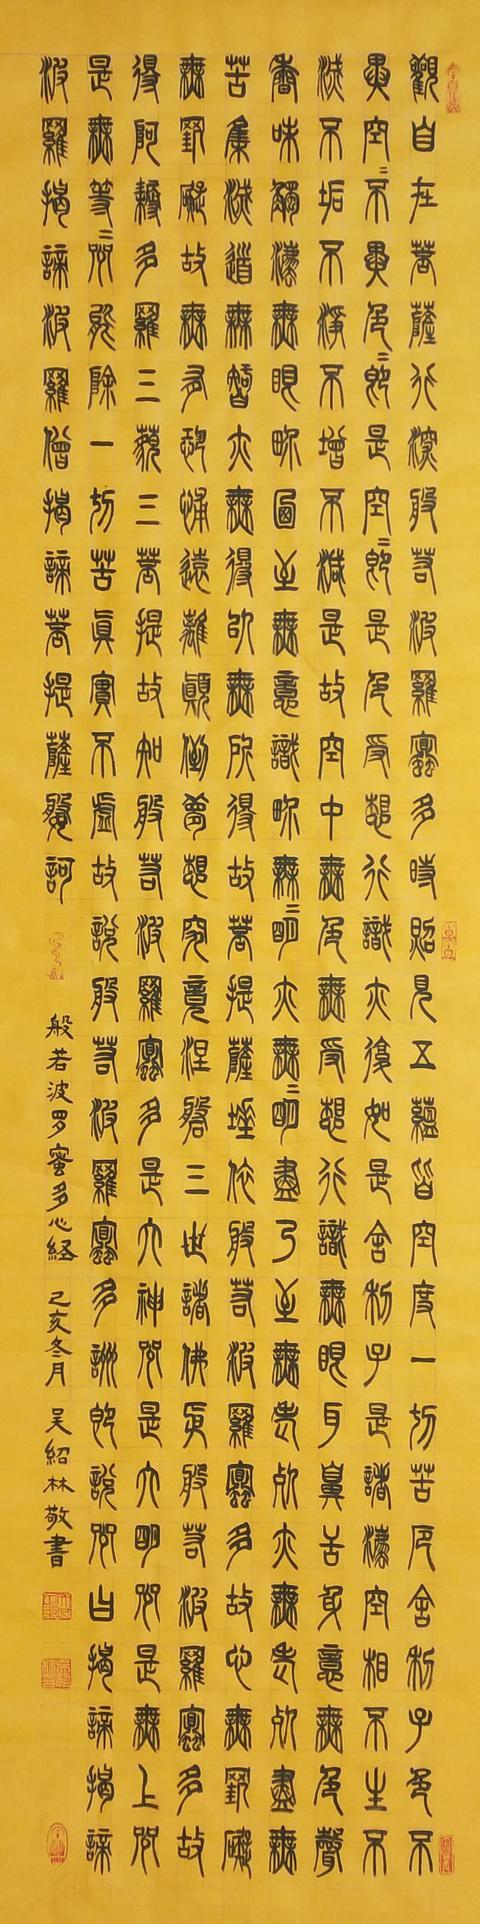 觀自在菩薩行深般若波羅蜜多時照見五蘊皆空度一切苦厄舍利子色不
異空〻不異色〻即是空〻即是色受想行識亦復如是舍利子是諸法空相不生不
滅不垢不淨不增不減是故空中無色無受想行識無眼耳鼻舌身意無色聲
香味觸法無眼界乃至無意識界無〻明亦無〻明盡乃至無老死亦無老死盡無
苦集滅道無智亦無得以無所得故菩提薩埵依般若波羅蜜多故心無罣礙
無罣礙故無有恐怖遠離顛倒夢想究竟涅槃三世諸佛依般若波羅蜜多故
得阿耨多羅三藐三菩提故知般若波羅蜜多是大神咒是大明咒是無上咒
是無等〻咒能除一切苦真實不虛故說般若波羅蜜多咒即說咒曰揭諦揭諦
波羅揭諦波羅僧揭諦菩提薩婆訶
般若波罗蜜多心経 己亥冬月 吴紹林敬書